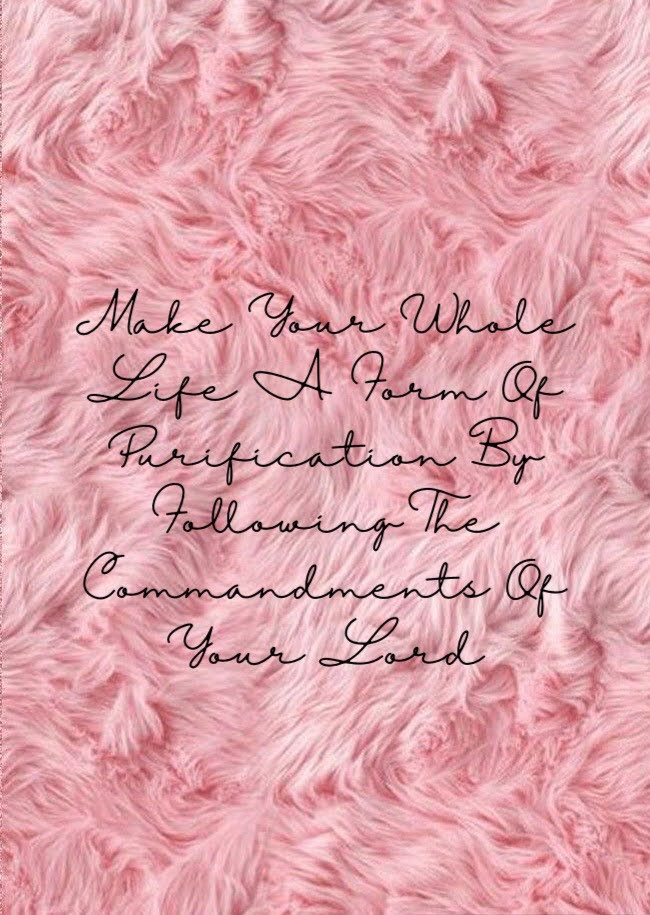 Make Your Whole
Life A Form Of
Purification By
Following The
Commandments Of
Your Lord